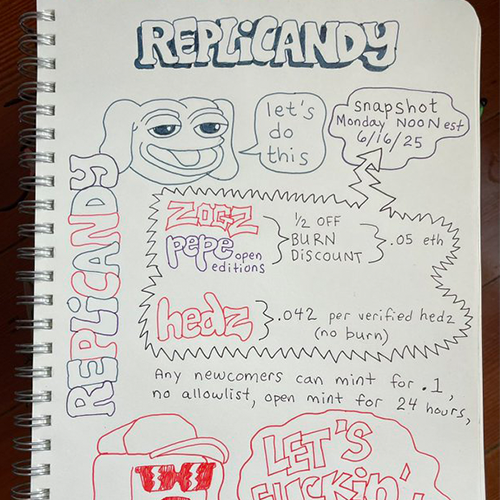 REPLiCANDY
let's
do
this
snapshot
Monday NOON est
6/16/25
REPLiCANDY
ZOGZ
pepe open
editions
1/2 OFF
BURN
DISCOUNT
.05 eth
hedz
.042 per verified hedz
(no burn)
Any newcomers can mint for .1,
no allowlist, open mint for 24 hours,
LET'S
FUCKiN'